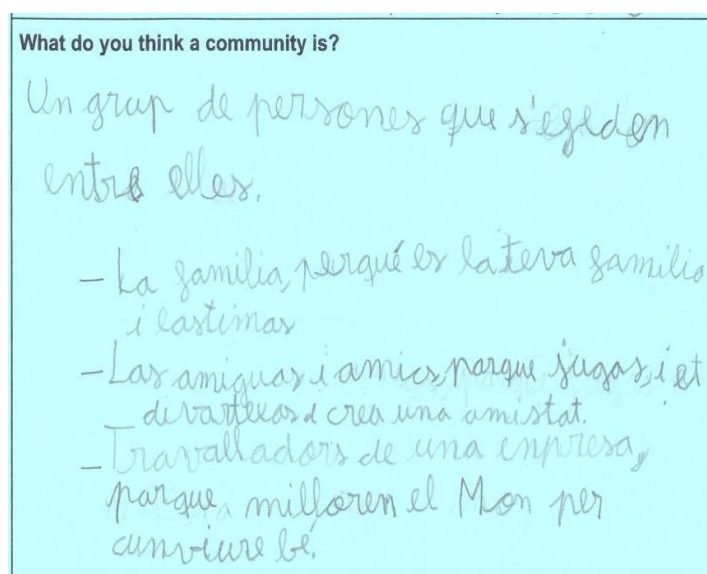 What do you think a community is?
Un grup de persones que s'egeden
entre elles.
- La familia, perqué es la teva familia
i lastimas
- Las amiguas i amics, parque jugas, i et
divartexas i crea una amistat.
- Travalladors de una enpresa,
parque milloren el Mon per
cunviure bé.